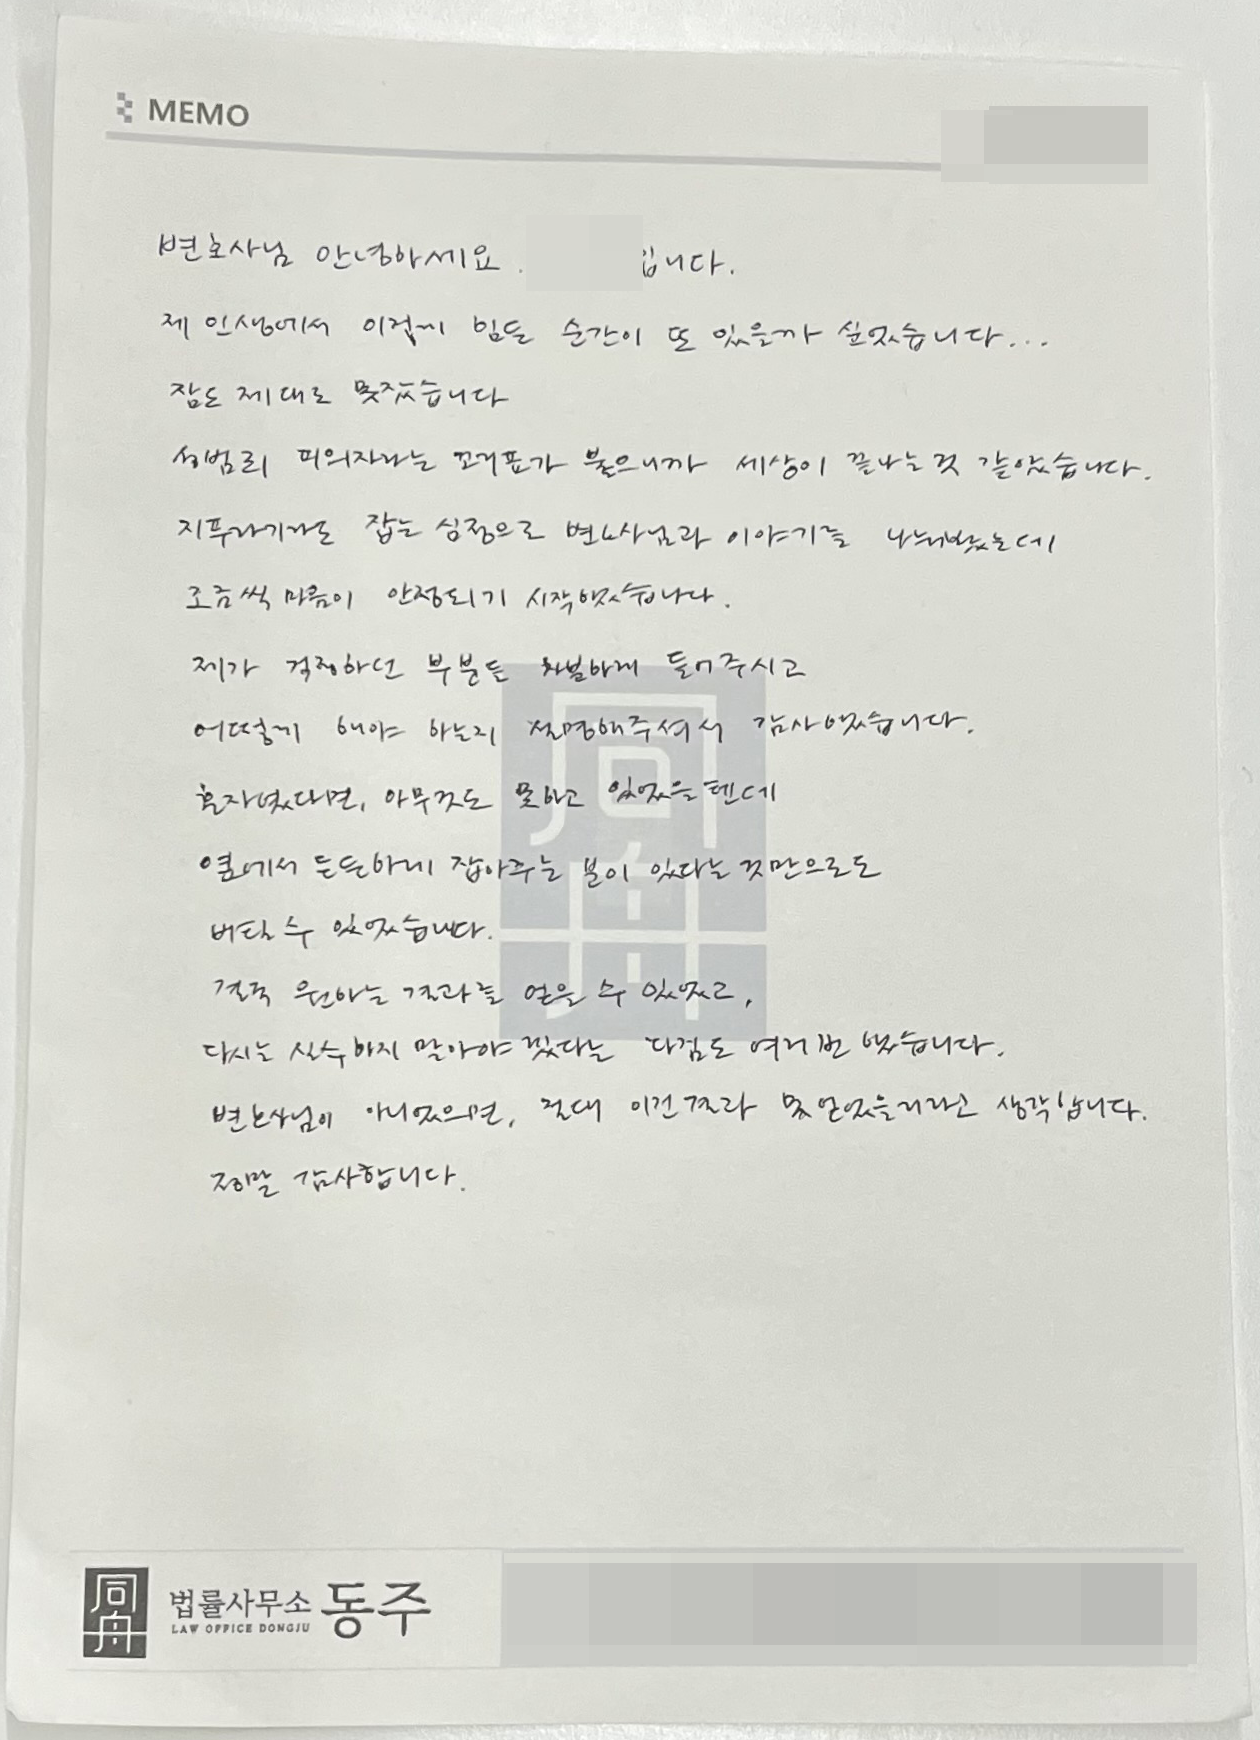 MEMO
변호사님 안녕하세요. 입니다.
제 인생에서 이렇게 힘든 순간이 또 있을까 싶었습니다...
잠도 제대로 못잤습니다
성범죄 피의자라는 꼬리표가 붙으니까 세상이 끝나는것 같았습니다.
지푸라기라도 잡는 심정으로 변호사님과 이야기를 나눠봤는데
조금씩 마음이 안정되기 시작했습니다.
제가 걱정하던 부분들 차분하게 들어주시고
어떻게 해야 하는지 설명해주셔서 감사했습니다.
혼자였다면, 아무것도 못하고 있었을텐데
옆에서 든든하게 잡아주는 분이 있다는것만으로도
버틸 수 있었습니다.
결국 원하는 결과를 얻을 수 있었고,
다시는 실수하지 말아야 겠다는 다짐도 여러번 했습니다.
변호사님이 아니었으면, 절대 이런결과 못얻었을거라고 생각합니다.
정말 감사합니다.
同舟
법률사무소 동주
LAW OFFICE DONGJU